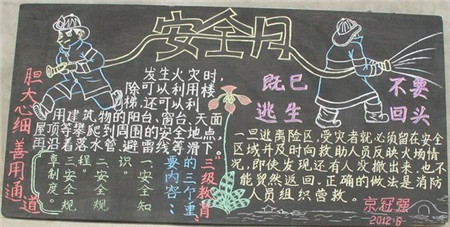 安全月
胆大心细 善用通道
发生火灾时，
除可以利用楼
梯，还可以利
用建筑物的阳台、窗台、天面
屋顶等攀爬到周围的安全地点
再沿着落水管、避雷线等滑下
三级教育
的三个重
要内容：
一安全知
识。
二安全规
程。
三安全规
章制度。
既已
逃生
不要
回头
一旦逃离险区，受灾者就必须留在安全
区域并及时向救助人员反映火场情
况，即使发现还有人没撤出来，也不
能贸然返回。正确的做法是消防
人员组织营救。
京冠强
2012.6